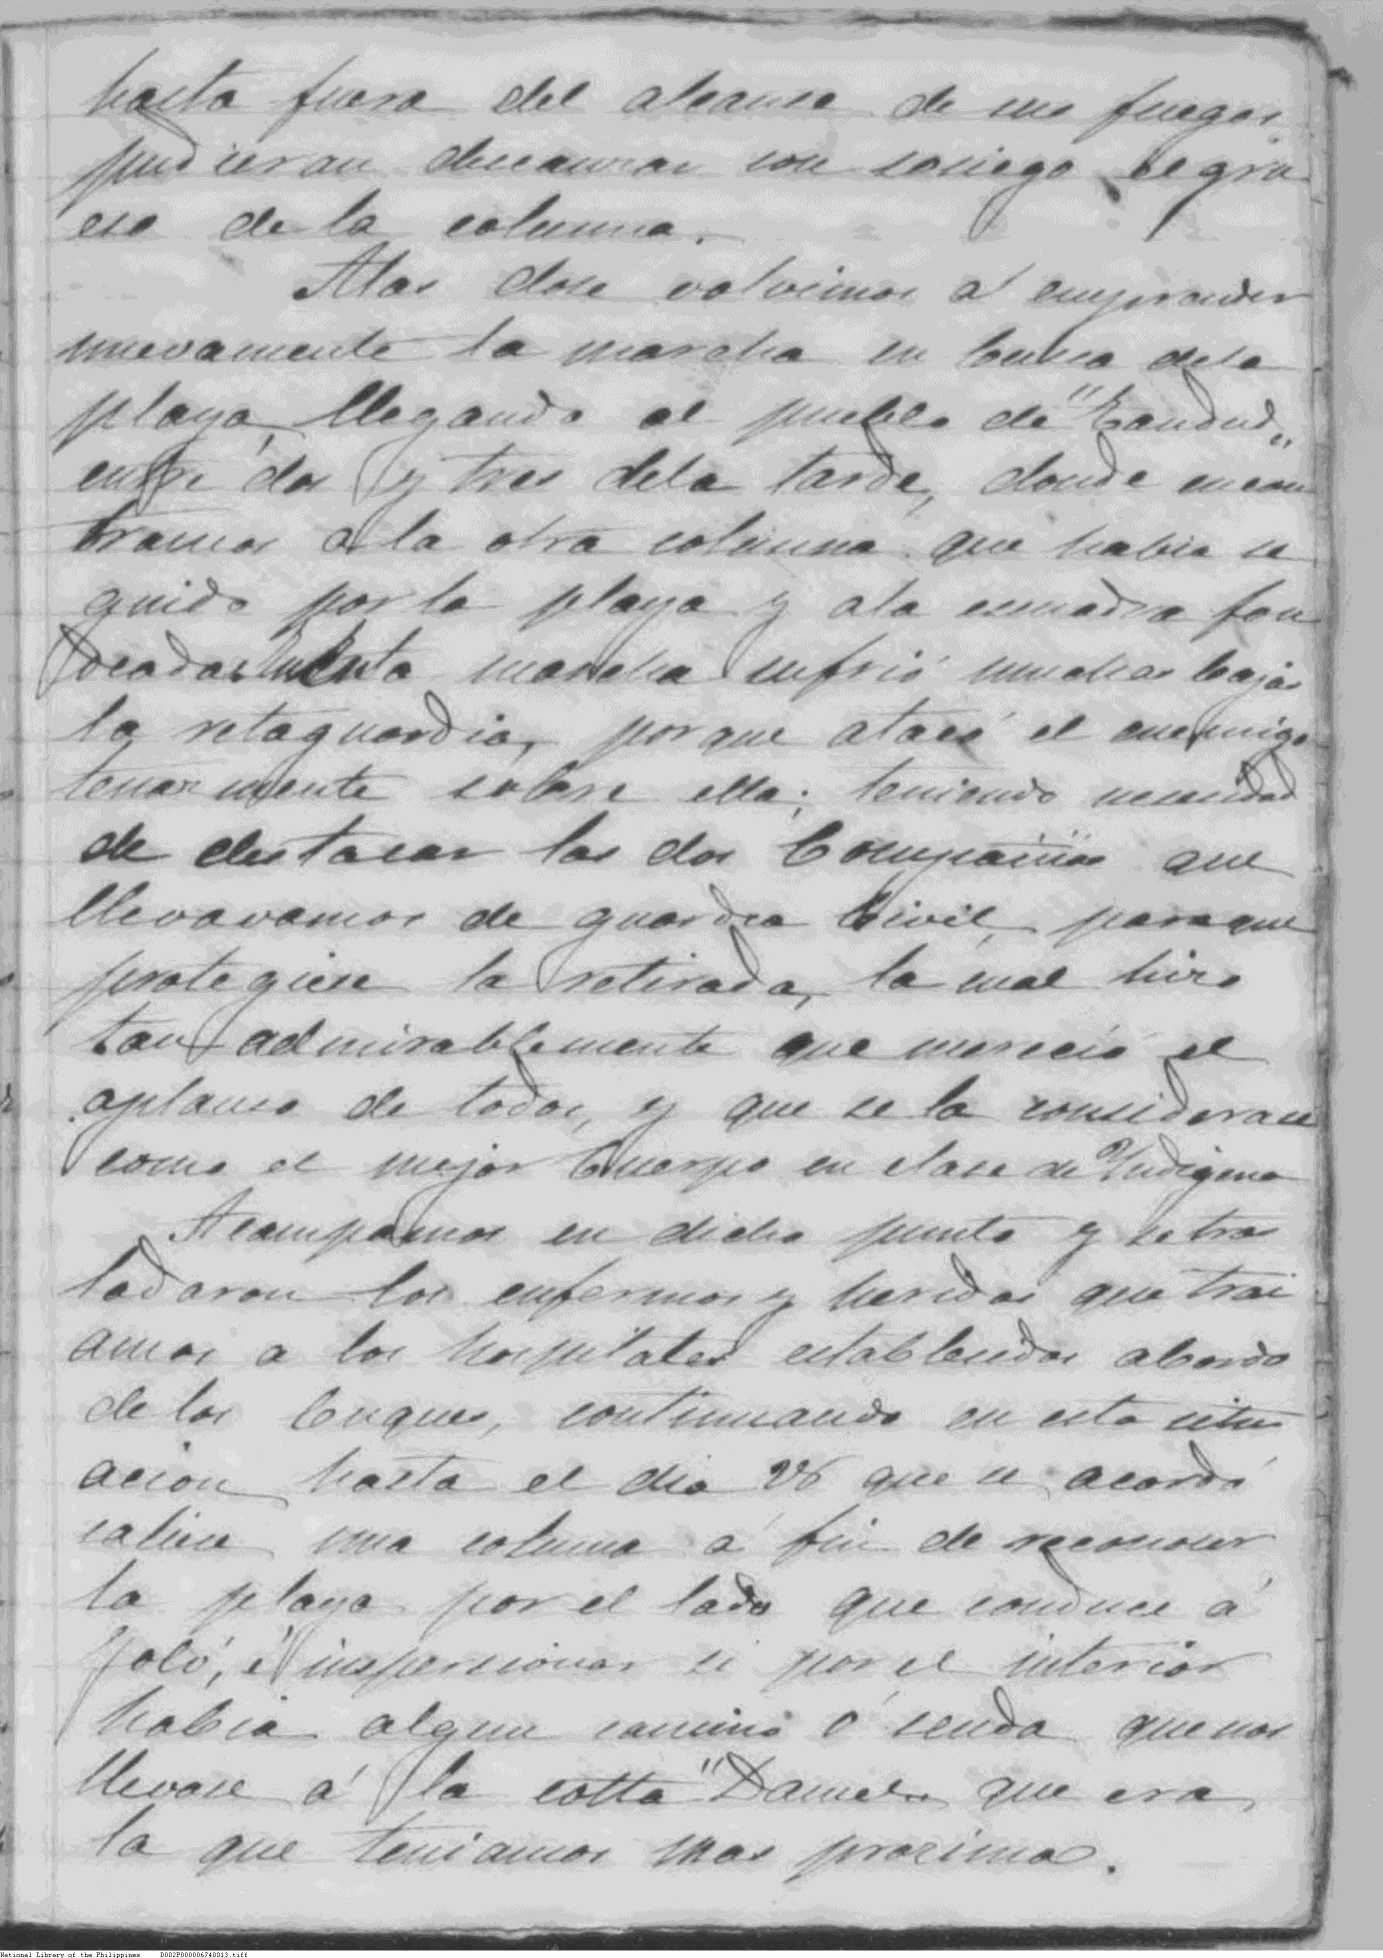 hasta fuera del alcance de sus fuegos
pudieran descansar con sosiego el gru
eso de la columna.
Alas doce volvimos á emprender
nuevamente la marcha en busca dela
playa, llegando al pueblo de "Tandud"
entre dos y tres dela tarde, donde encon
tramos a la otra columna que habia se
guido por la playa y ala escuadra fon
deada. En esta marcha sufrió muchas bajas
la retaguardia, porque atacó el enemigo
tenazmente sobre ella; teniendo necesidad
de destacar las dos Compañias que
llevavamos de guardia Civil, paraque
protegiese la retirada, la cual hizo
tan admirablemente que mereció el
aplauso de todos, y que se la considerase
como el mejor Cuerpo en clase de Yndigena
Acampamos en dicho punto y se tras
ladaron los enfermos y heridos que trai
amos a los hospitales establecidos abordo
de los buques, continuando en esta situ
acion hasta el dia 26 que se acordó
saliese una columna á fin de reconocer
la playa por el lado que conduce á
Joló, é inspeccionar si por el interior
habia algun camino ó senda que nos
llevase á la cotta "Daniel" que era
la que teniamos mas proxima.
National Library of the Philippines D002P000006740013.tiff